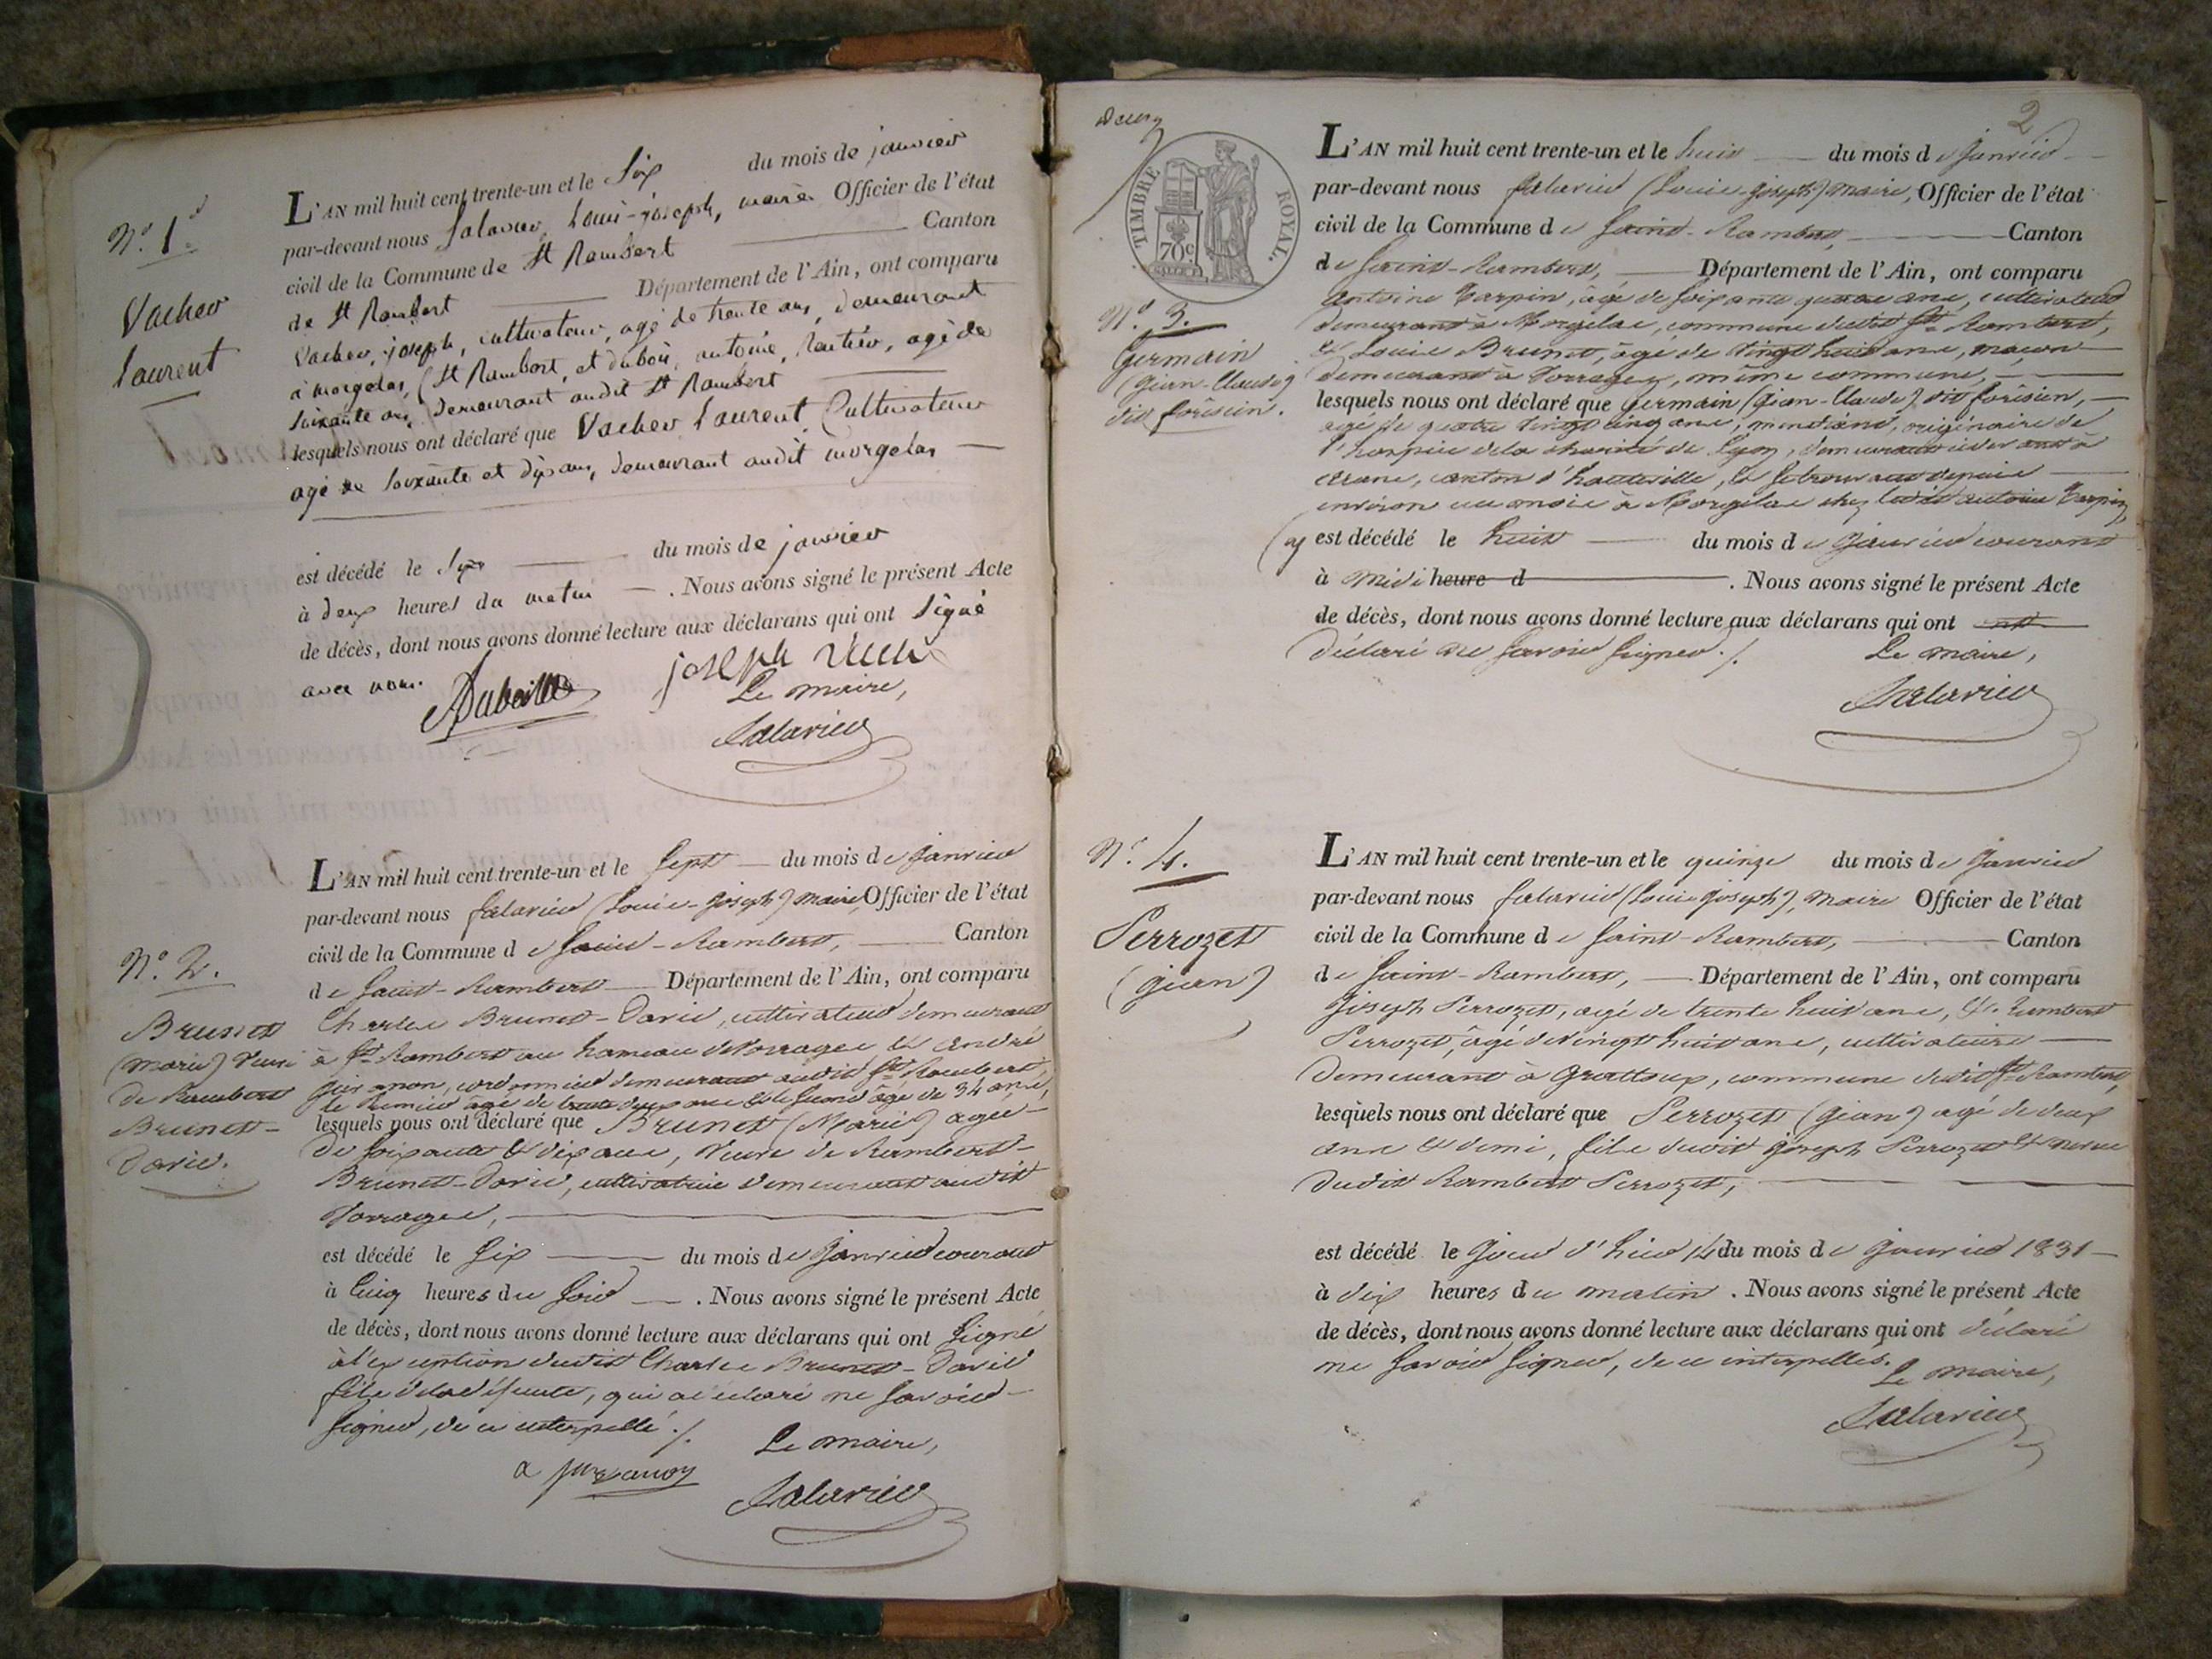 N.º 1.er
Vacher
Laurent
L'AN mil huit cent trente-un et le Six du mois de janvier
par-devant nous Salavier, Louis-joseph, maire Officier de l'état
civil de la Commune de St Rambert Canton
de St Rambert Département de l'Ain, ont comparu
Vacher, joseph, cultivateur, agé de trente ans, demeurant
à morgelas, (St Rambort, et dubois, antoine, rentier, agé de
soixante ans, demeurant audit St Rambert
lesquels nous ont déclaré que Vacher Laurent Cultivateur
agé de soixante et dix ans, demeurant audit morgelas
est décédé le six du mois de janvier
à deux heures du matin . Nous avons signé le présent Acte
de décès, dont nous avons donné lecture aux déclarans qui ont Signé
avec nous.
joseph
Le maire,
Salavier
N.º 2.
Brunet
(Marie) veuve
de Rambert
Brunet-
David.
L'AN mil huit cent trente-un et le Sept du mois de Janvier
par-devant nous Salavier (Louis-Joseph) maire, Officier de l'état
civil de la Commune de Saint-Rambert, Canton
de Saint-Rambert Département de l'Ain, ont comparu
Charles Brunet-David, cultivateur demeurant
à St Rambert au hameau de Vorrages & André
cordonnier demeurant audit St Rambert,
le premier âgé de trente deux ans & le second âgé de 34 ans,
lesquels nous ont déclaré que Brunet (Marie) agée
de soixante & dix ans, veuve de Rambert-
Brunet-David, cultivatrice demeurant audit
Vorrages,
est décédé le Six du mois de Janvier courant
à Cinq heures du Soir . Nous avons signé le présent Acte
de décès, dont nous avons donné lecture aux déclarans qui ont Signé
à l'exception dudit Charles Brunet-David
fils de la défunte, qui a déclaré ne savoir
signer, de ce interpellé ./.
Le maire,
Salavier
2
TIMBRE ROYAL.
70c
N.º 3.
Germain
(Jean-Claude)
dit forisien.
L'AN mil huit cent trente-un et le huit du mois de Janvier
par-devant nous Salavier (Louis-Joseph) maire, Officier de l'état
civil de la Commune de Saint-Rambert, Canton
de Saint-Rambert, Département de l'Ain, ont comparu
Antoine Tarpin, âgé de soixante quatre ans, cultivateur
demeurant à Morgelas, commune dudit St Rambert,
& Louis Brunet, âgé de vingt huit ans, maçon
demeurant à Vorrages, même commune,
lesquels nous ont déclaré que Germain (Jean-Claude) dit forisien,
agé de quatre vingt cinq ans, mendiant, originaire de
l'hospice de la charité de Lyon, demeurant
canton d'hauteville, & se trouvant depuis
environ un mois à Morgelas chez ledit antoine Tarpin,
est décédé le huit du mois de Janvier courant
à midi heure d . Nous avons signé le présent Acte
de décès, dont nous avons donné lecture aux déclarans qui ont
déclaré ne savoir signer ./. Le maire,
Salavier
N.º 4.
Perrozet
(Jean)
L'AN mil huit cent trente-un et le quinze du mois de Janvier
par-devant nous Salavier (Louis Joseph), maire Officier de l'état
civil de la Commune de Saint-Rambert, Canton
de Saint-Rambert, Département de l'Ain, ont comparu
Joseph Perrozet, agé de trente huit ans, & Rambert
Perrozet, âgé de vingt huit ans, cultivateurs
demeurant à Grattoux, commune dudit St Rambert,
lesquels nous ont déclaré que Perrozet (Jean) agé de deux
ans & demi, fils dudit Joseph Perrozet & neveu
dudit Rambert Perrozet,
est décédé le jour d'hier 14 du mois de Janvier 1831
à dix heures du matin . Nous avons signé le présent Acte
de décès, dont nous avons donné lecture aux déclarans qui ont déclaré
ne savoir signer, de ce interpellés. Le maire,
Salavier